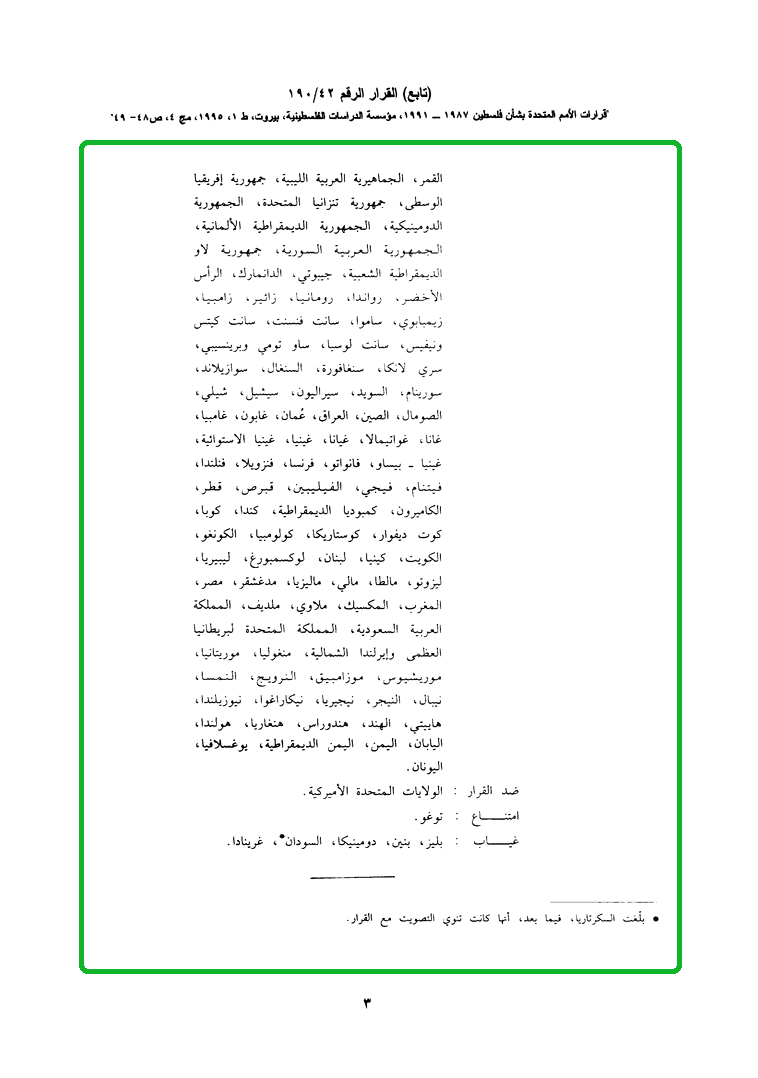 (تابع) القرار الرقم ١٩٠/٤٢
"قرارات الأمم المتحدة بشأن فلسطين ١٩٨٧ – ١٩٩١، مؤسسة الدراسات الفلسطينية، بيروت، ط ١، ١٩٩٥، مج ٤، ص٤٨- ٤٩"
القمر، الجماهيرية العربية الليبية، جمهورية إفريقيا
الوسطى، جمهورية تنزانيا المتحدة، الجمهورية
الدومينيكية، الجمهورية الديمقراطية الألمانية،
الجمهورية العربية السورية، جمهورية لاو
الديمقراطية الشعبية، جيبوتي، الدانمارك، الرأس
الأخضر، رواندا، رومانيا، زائير، زامبيا،
زيمبابوي، ساموا، سانت فنسنت، سانت كيتس
ونيفيس، سانت لوسيا، ساو تومي وبرينسيبي،
سري لانكا، سنغافورة، السنغال، سوازيلاند،
سورينام، السويد، سيراليون، سيشيل، شيلي،
الصومال، الصين، العراق، عُمان، غابون، غامبيا،
غانا، غواتيمالا، غيانا، غينيا، غينيا الاستوائية،
غينيا ـ بيساو، فانواتو، فرنسا، فنزويلا، فنلندا،
فيتنام، فيجي، الفيليبين، قبرص، قطر،
الكاميرون، كمبوديا الديمقراطية، كندا، كوبا،
كوت ديفوار، كوستاريكا، كولومبيا، الكونغو،
الكويت، كينيا، لبنان، لوكسمبورغ، ليبيريا،
ليزوتو، مالطا، مالي، ماليزيا، مدغشقر، مصر،
المغرب، المكسيك، ملاوي، ملديف، المملكة
العربية السعودية، المملكة المتحدة لبريطانيا
العظمى وإيرلندا الشمالية، منغوليا، موريتانيا،
موريشيوس، موزامبيق، النرويج، النمسا،
نيبال، النيجر، نيجيريا، نيكاراغوا، نيوزيلندا،
هاييتي، الهند، هندوراس، هنغاريا، هولندا،
اليابان، اليمن، اليمن الديمقراطية، يوغسلافيا،
اليونان.
ضد القرار : الولايات المتحدة الأميركية.
امتنـــــاع : توغو.
غيـــــاب : بليز، بنين، دومينيكا، السودان•، غرينادا.
• بلّغت السكرتاريا، فيما بعد، أنها كانت تنوي التصويت مع القرار.
٣